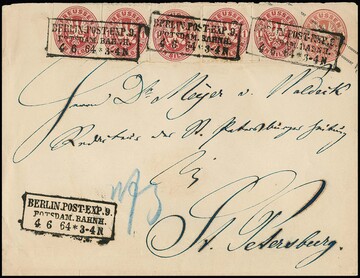 PREUSSEN PREUSSEN
BERLIN.POST-EXP.9.
POTSDAM.BAHNH.
4 6 64 * 3-4 N
BERLIN.POST-EXP.9.
POTSDAM.BAHNH.
4 6 64 * 3-4 N
Herrn Dr Meyer v Waldeck
Redacteur der St Petersburger Zeitung
in
BERLIN.POST-EXP.9.
POTSDAM.BAHNH.
4 6 64 * 3-4 N
St. Petersburg.